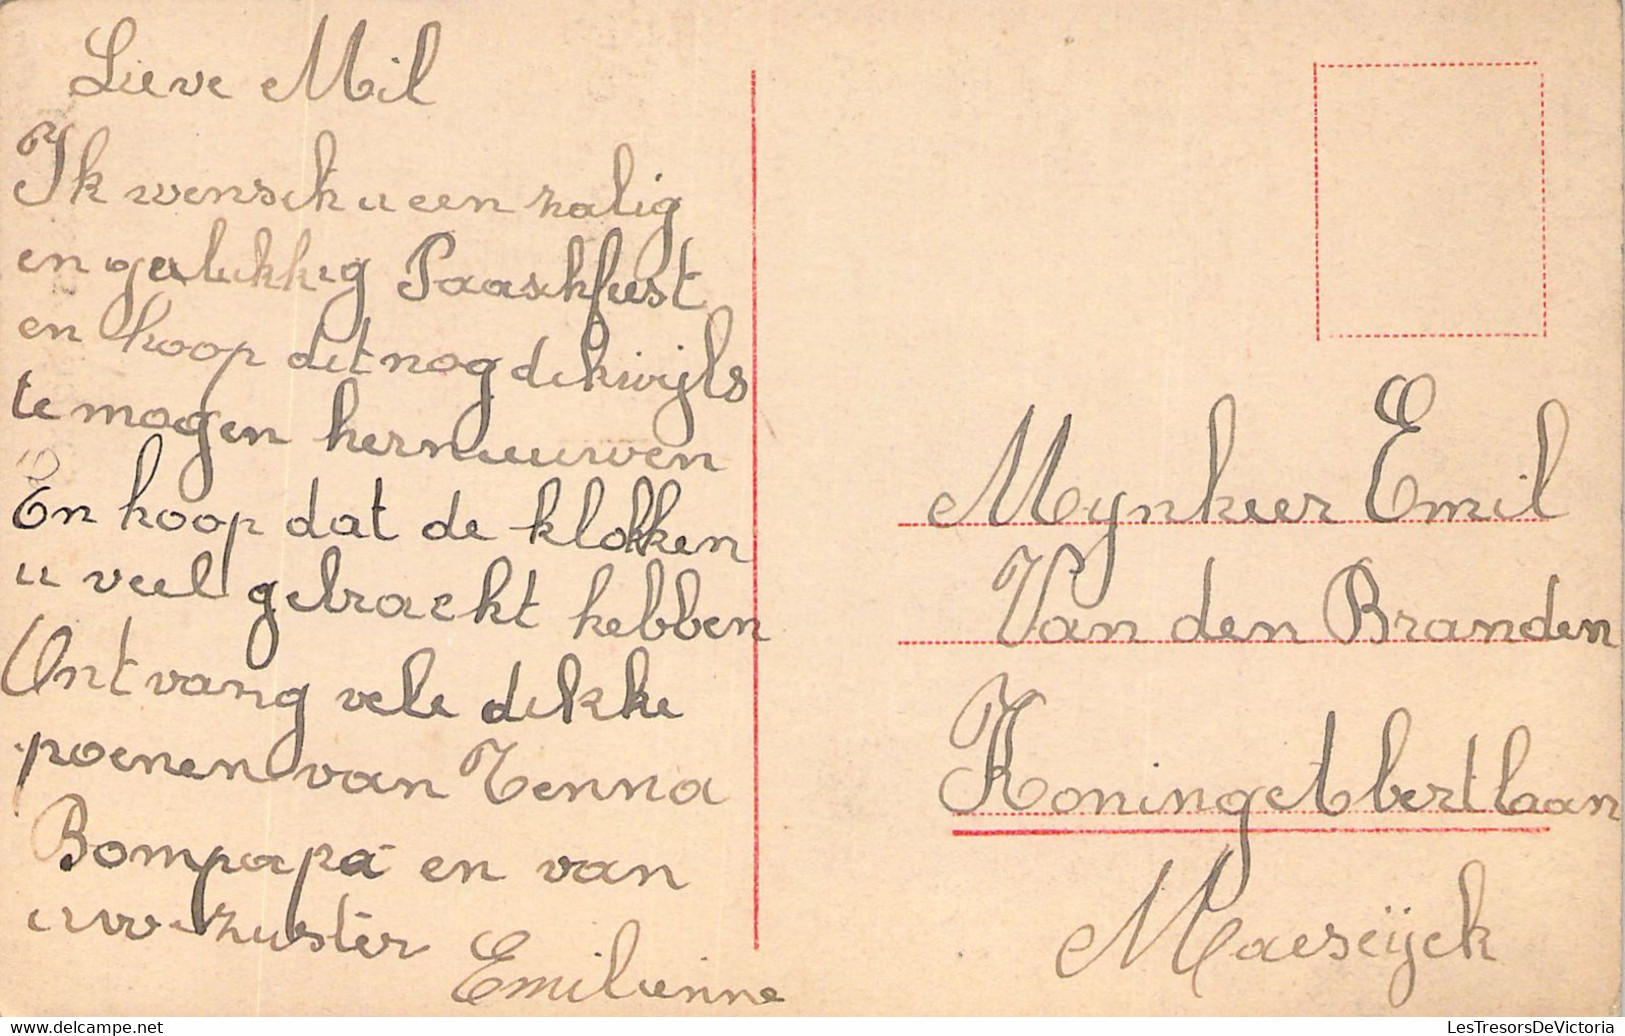 Lieve Mil
Ik wensch u een zalig
en gelukkig Paaschfeest
en hoop dit nog dikwijls
te mogen hernieuwen
En hoop dat de klokken
u veel gebracht hebben
Ontvang vele dikke
poenen van Nenna
Bompapa en van
uw zuster
Emilienne
Mynheer Emil
Van den Branden
Koning Albertlaan
Maeseijck
delcampe.net
LesTresorsDeVictoria